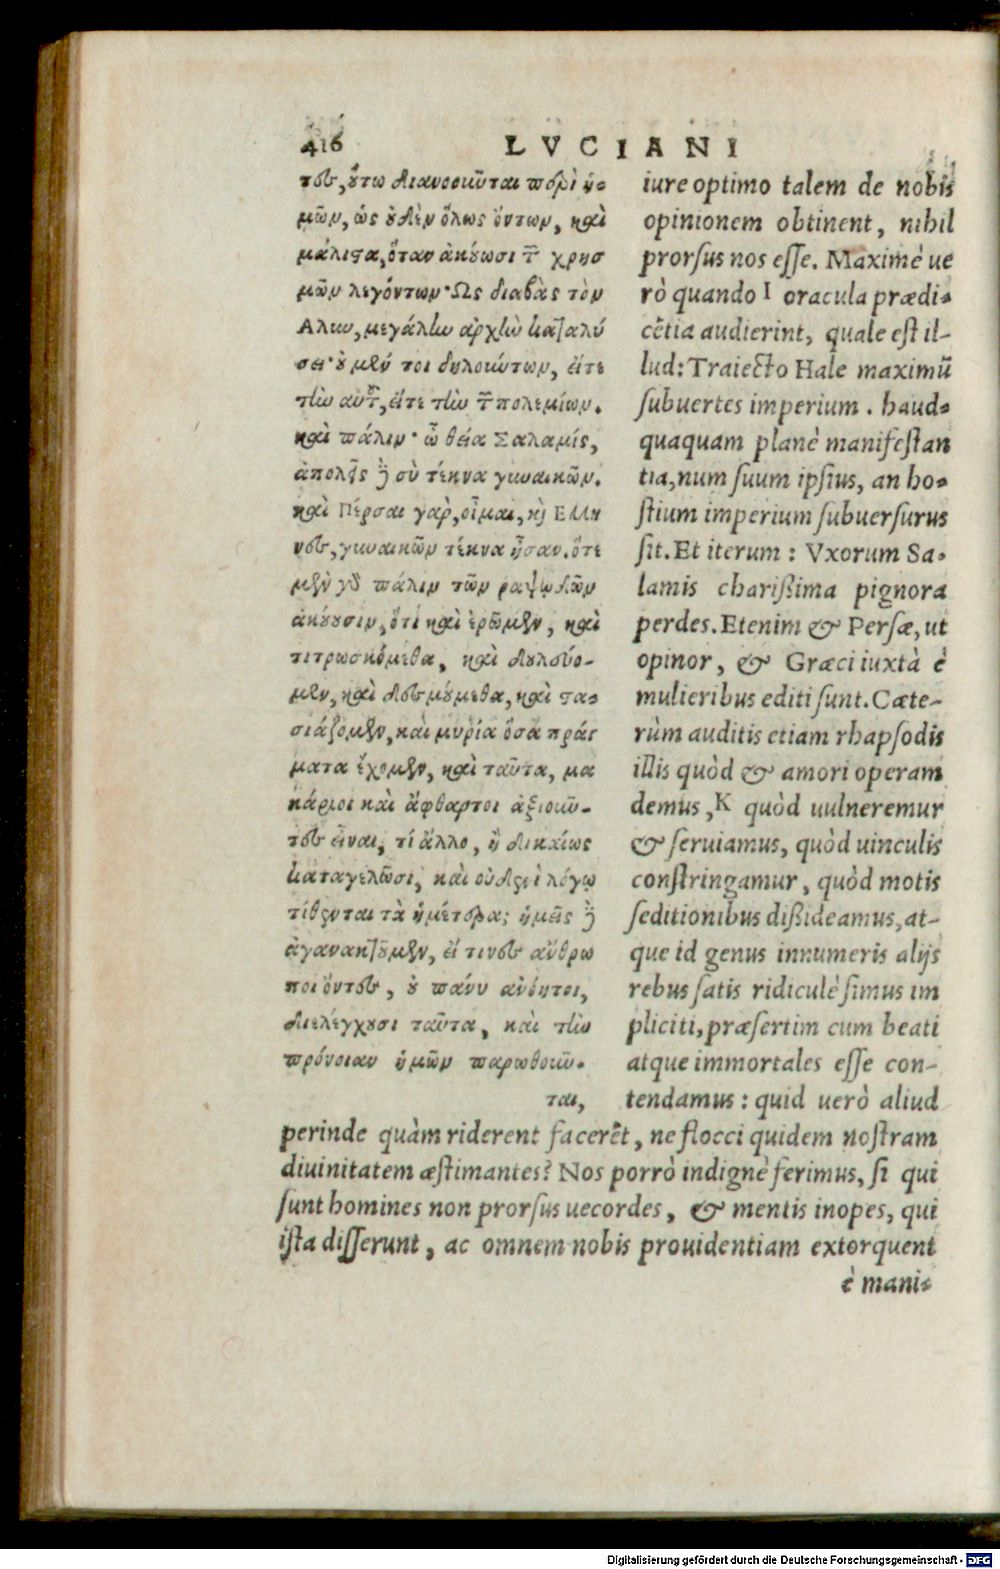 416 LVCIANI
τες, ὅτω διανοοῦνται περὶ ἡ-
μῶν, ὡς ὐδὲν ὅλως ὄντων, καὶ
μάλιστα, ὅταν ἀκύωσι τ͂ χρησ
μῶν λεγόντων· Ὡς διαβὰς τὸν
Ἅλυν, μεγάλἰω ἀρχἰὼ καταλύ
σει· ὐ μὲν τοι δηλοιώτων, εἴτε
τἰὼ αὑτ͂, εἴτε τἰὼ τ͂ πολεμίων.
καὶ πάλιν· ὦ θεία Σαλαμίς,
ἀπολεῖς δὲ σὺ τέκνα γυναικῶν.
καὶ Πέρσαι γὰρ, οἶμαι, καὶ Ελλη
νες, γυναικῶν τέκνα ἦσαν. ὅτε
μὲν γὸ πάλιν τῶν ραψῳδῶν
ἀκύυσιν, ὅτι καὶ ἐρῶμεν, καὶ
τιτρωσκόμεθα, καὶ δυλεύο-
μεν, καὶ δεσμύμεθα, καὶ στα-
σιάζομεν, καὶ μυρία ὅσα πράγ
ματα ἔχομεν, καὶ ταῦτα, μα
κάριοι καὶ ἄφθαρτοι ἀξιοιῦ-
τες εἶναι, τί ἄλλο, ἢ δικαίως
καταγελῶσι, καὶ οὐδενὶ λόγῳ
τίθενται τὰ ἡμέτερα; ἡμεῖς δὲ
ἀγανακτῦμεν, εἴ τινες ἄνθρω
ποι ὄντες, ὐ πάνυ ἀνόητοι,
διελέγχυσι ταῦτα, καὶ τἰὼ
πρόνοιαν ἡμῶν παρωθοιῦ-
ται,
iure optimo talem de nobis
opinionem obtinent, nihil
prorsus nos esse. Maximè ue
rò quando I oracula prædi-
cẽtia audierint, quale est il-
lud: Traiecto Hale maximũ
subuertes imperium. haud-
quaquam planè manifestan
tia, num suum ipsius, an ho-
stium imperium subuersurus
sit. Et iterum: Vxorum Sa-
lamis charißima pignora
perdes. Etenim & Persæ, ut
opinor, & Græci iuxtà è
mulieribus editi sunt. Cæte-
rùm auditis etiam rhapsodis
illis quòd & amori operam
demus, K quòd uulneremur
& seruiamus, quòd uinculis
constringamur, quòd motis
seditionibus dißideamus, at-
que id genus innumeris alijs
rebus satis ridiculè simus im
pliciti, præsertim cum beati
atque immortales esse con-
tendamus: quid uerò aliud
perinde quàm riderent facerẽt, ne flocci quidem nostram
diuinitatem æstimantes? Nos porrò indignè ferimus, si qui
sunt homines non prorsus uecordes, & mentis inopes, qui
ista disserunt, ac omnem nobis prouidentiam extorquent
è mani-
Digitalisierung gefördert durch die Deutsche Forschungsgemeinschaft - DFG